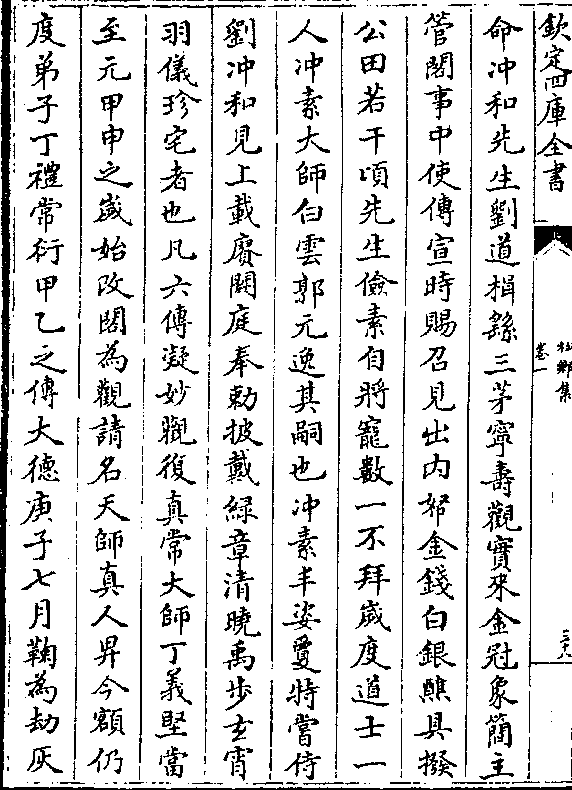 欽定四庫全書
杜鄉集
卷一
三十八
命冲和先生劉道楫繇三茅寧壽觀實來金冠象簡主
管閣事中使傳宣時賜召見出内帑金錢白銀醮具撥
公田若干頃先生儉素自將寵數一不拜嵗度道士一
人冲素大師白雲郭元逸其嗣也冲素丰姿敻特嘗侍
劉冲和見上載賡闕庭奉勅披戴緑章清曉禹步玄霄
羽儀珍宅者也凡六傳凝妙觀復真常大師丁義堅當
至元甲申之嵗始改閣為觀請名天師真人畀今額仍
度弟子丁禮常衍甲乙之傳大德庚子七月鞠為劫灰